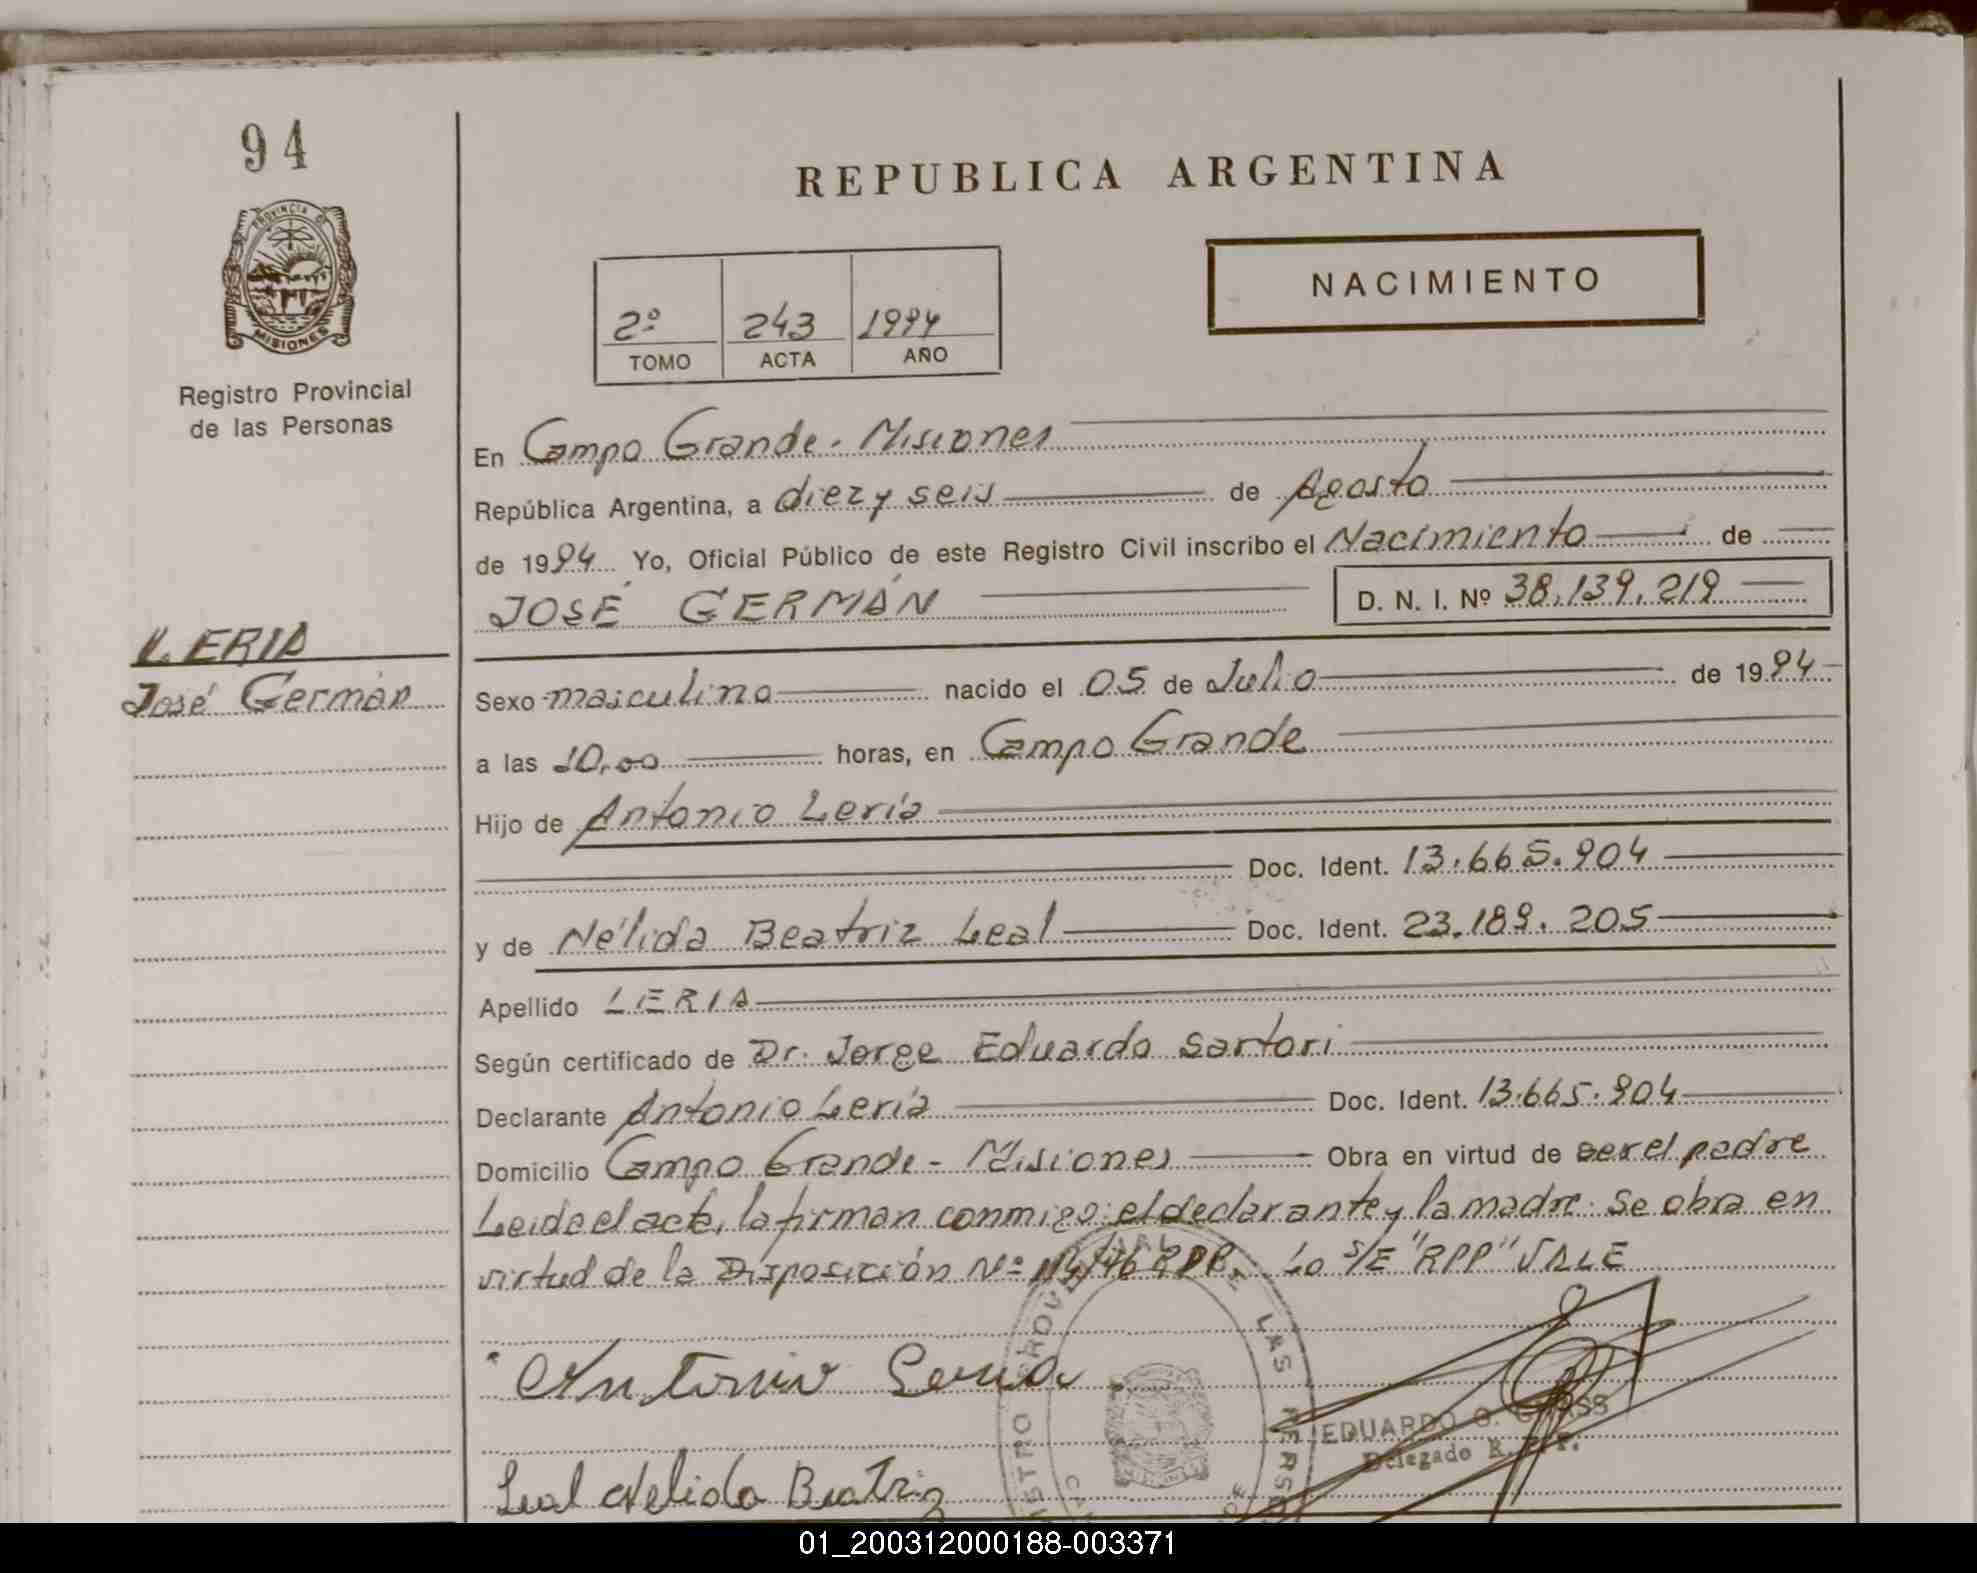 94
PROVINCIA DE
MISIONES
Registro Provincial
de las Personas
REPUBLICA ARGENTINA
NACIMIENTO
2º 243 1994
TOMO ACTA AÑO
En Campo Grande - Misiones
República Argentina, a diez y seis de Agosto
de 1994 Yo, Oficial Público de este Registro Civil inscribo el Nacimiento de
JOSÉ GERMÁN D. N. I. Nº 38.139.219
LERIA
José Germán
Sexo masculino nacido el 05 de Julio de 1994
a las 10,00 horas, en Campo Grande
Hijo de Antonio Leria
Doc. Ident. 13.665.904
y de Nélida Beatriz Leal Doc. Ident. 23.189.205
Apellido LERIA
Según certificado de Dr. Jorge Eduardo Sartori
Declarante Antonio Leria Doc. Ident. 13.665.904
Domicilio Campo Grande - Misiones Obra en virtud de ser el padre
Leida el acta, la firman conmigo: el declarante y la madre. Se obra en
virtud de la Disposición Nº Lo S/E "RPP" VALE
Antonio Leria
EDUARDO G.
Delegado R. P. P.
Leal Nelida Beatriz
REGISTRO PROVINCIAL DE LAS PERSONAS
01_200312000188-003371